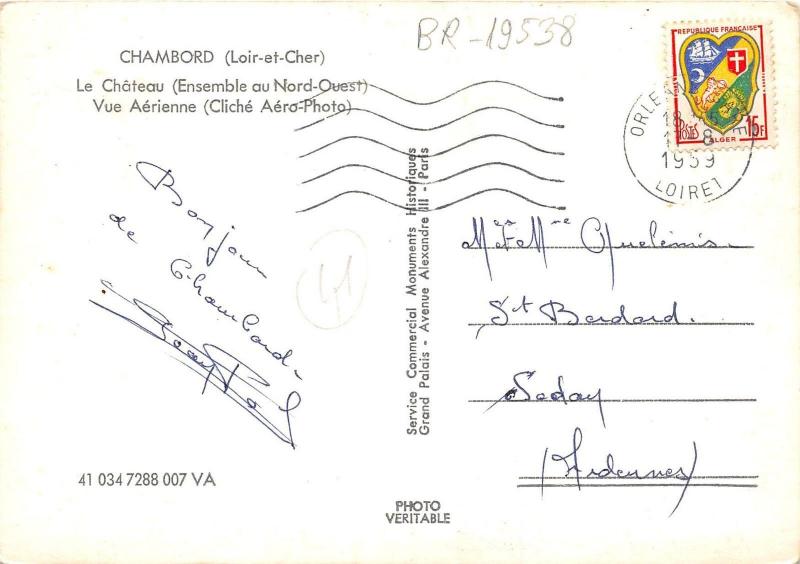 BR-19538
CHAMBORD (Loir-et-Cher)
Le Château (Ensemble au Nord-Ouest)
Vue Aérienne (Cliché Aéro-Photo)
REPUBLIQUE FRANÇAISE
POSTES 15F
ALGER
18
8
1959
LOIRET
Bonjour
de
Chambord
41
Service Commercial Monuments Historiques
Grand Palais - Avenue Alexandre III - Paris
St Bardard.
Sedan
(Ardennes)
41 034 7288 007 VA
PHOTO
VERITABLE